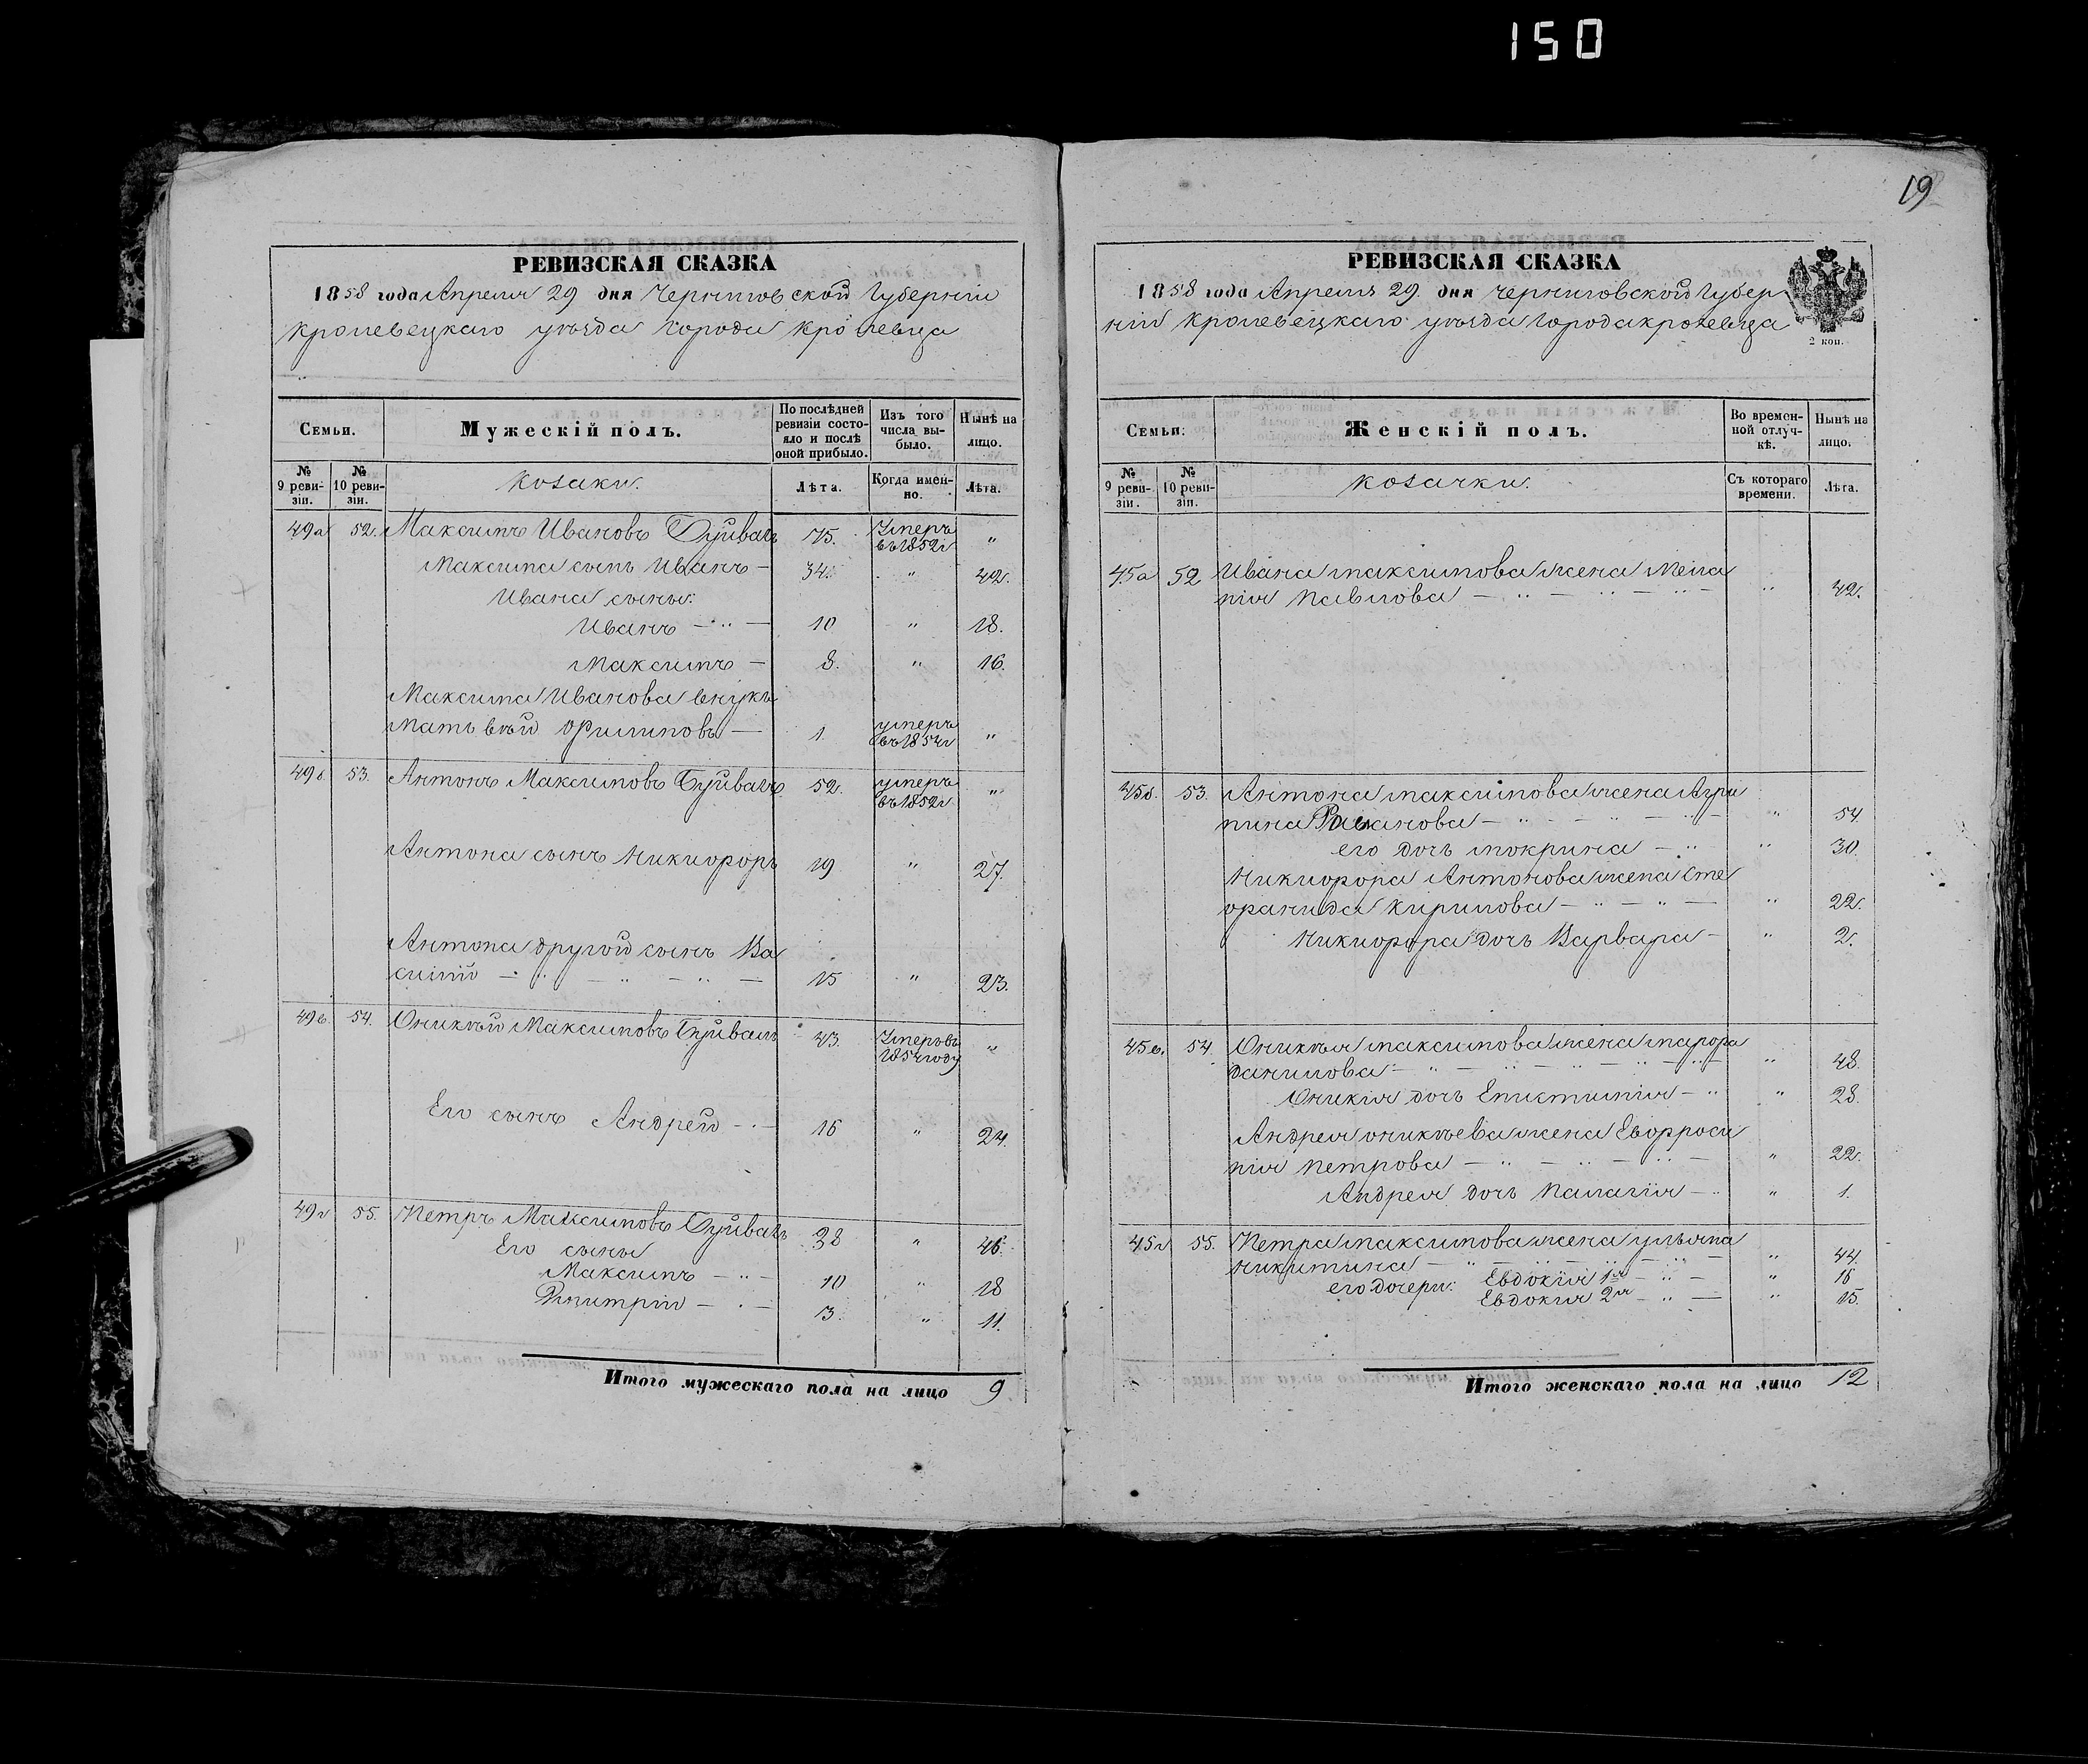 150
19
РЕВИЗСКАЯ СКАЗКА
1858 года Апреля 29 дня Черниговской Губерніи
Кролевецкаго уѣзда города Кролевца
Семьи.
Мужескій полъ.
По послѣдней ревизіи состояло и послѣ оной прибыло.
Изъ того числа выбыло.
Нынѣ на лицо.
№ 9 ревизіи.
№ 10 ревизіи.
козаки.
Лѣта.
Когда именно.
Лѣта.
49а 52. Максимъ Ивановъ 75. Умеръ въ 1852г "
Максима сынъ Иванъ — 34. " 42.
Ивана сыны:
Иванъ — " — 10 " 18.
Максимъ — 8. " 16.
Максима Иванова внукъ
Матвѣй Филиповъ — 1. умеръ въ 1854г "
49б. 53. Антонъ Максимовъ 52. умеръ въ 1852г. "
Антона сынъ Никифоръ 19 " 27.
Антона другой сынъ Ва
силій — " — " — " — 15 " 23.
49в. 54. Оникѣй Максимовъ 43. Умеръ въ 1854 году "
Его сынъ Андрей — 16 " 24.
49г 55. Петръ Максимовъ 38 " 46.
Его сыны
Максимъ — " — 10 " 18
Дмитрій — " — 3. " 11.
Итого мужескаго пола на лицо 9
РЕВИЗСКАЯ СКАЗКА
1858 года Апреля 29. дня Черниговской Губер
ніи Кролевецкаго уѣзда города Кролевца
2 коп.
Семьи.
Женскій полъ.
Во временной отлучкѣ.
Нынѣ на лицо.
№ 9 ревизіи.
№ 10 ревизіи.
козачки.
Съ котораго времени.
Лѣта.
45а 52 Ивана Максимова жена Мела
нія Павлова — " — " — " — " 42.
45б. 53. Антона Максимова жена Агри
пина — " — " — " — " 54.
его дочь Мокрина — " " 30.
Никифора Антонова жена Сте
фанида Кирилова — " — " — " 22.
Никифора дочь Варвара — " 2.
45в. 54. Оникѣя Максимова жена Марфа
Данилова — " — " — " — " — " 48.
Оникія дочь Епистимія — " " 28.
Андрея Оникѣева жена Евфроси
нія Петрова — " — " — " — " 22.
Андрея дочь Палагія — " " 1.
45г 55. Петра Максимова жена Ульяна
Никитина — " — " — " — " 44.
его дочери: Евдокія 1я — " — " 18
Евдокія 2я — " — " 15.
Итого женскаго пола на лицо 12